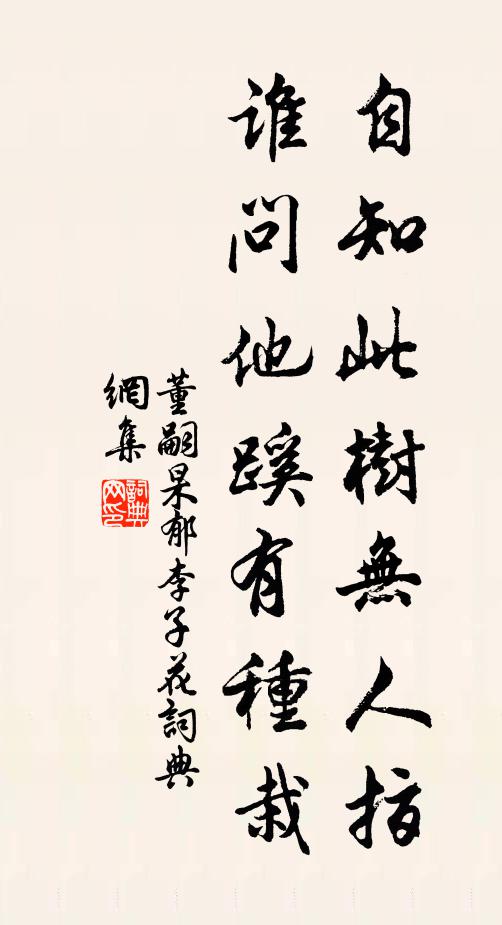 自知此樹無人指
誰問他蹊有種栽
董嗣杲郁李子花詞典
網集
詞典
网印